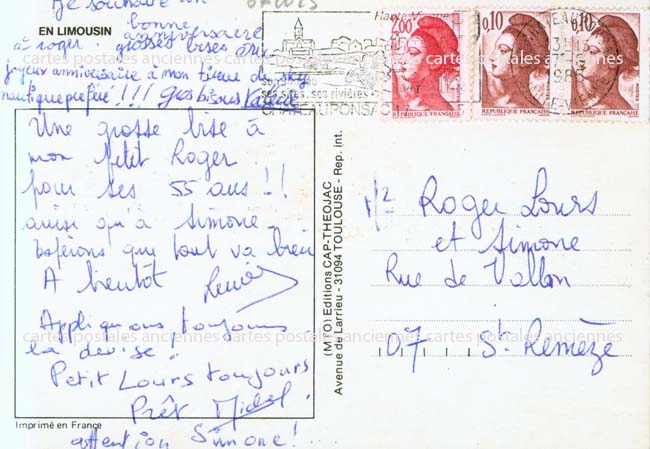 Je souhaite un
bonne
EN LIMOUSIN
anniversaire
à roger. grosses bises
joyeux anniversaire à mon tireur de ski
nautique préféré !!! Gros bisous
Une grosse bise à
mon petit Roger
pour ses 55 ans !!
ainsi qu'à Simone
que tout va bien
A bientôt
Appliquons toujours
la devise :
Petit Lours toujours
Prêt Michel
attention Simone !
Imprimé en France
(MTO) Editions CAP-THEOJAC
Avenue de Larrieu - 31094 TOULOUSE - Rep. int.
Haute-Vienne
ses sites, ses rivières
CHATEAUPONSAC
2,00
REPUBLIQUE FRANÇAISE
0,10
REPUBLIQUE FRANÇAISE
0,10
REPUBLIQUE FRANÇAISE
Roger Lours
et Simone
Rue de Vallon
07 St Remèze
cartes postales anciennes cartes postales anciennes cartes postales anciennes